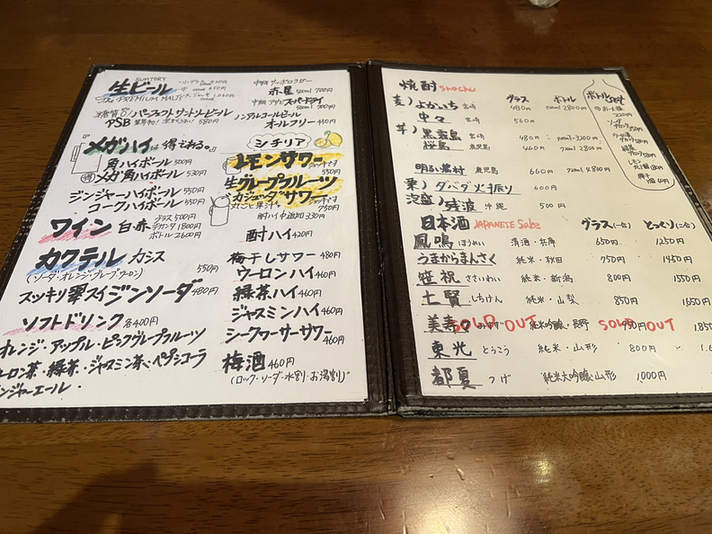 SUNTORY
生ビール
The PREMIUM MALT'S
糖質0 パーフェクトサントリービール
PSB 580円
メガハイは得である。
角ハイボール 500円
得 メガ角ハイボール 930円
ジンジャーハイボール 550円
コークハイボール 550円
ワイン 白 赤
グラス 500円
デカンタ 1800円
ボトル 2600円
カクテル カシス
(ソーダ・オレンジ・グレープ・ウーロン) 550円
スッキリ翠スイジンソーダ 480円
ソフトドリンク 各400円
オレンジ・アップル・ピンクグレープフルーツ
ーロン茶・緑茶・ジャスミン茶、ペプシコーラ
ンジャーエール・
中瓶 サッポロラガー
赤星 500ml 700円
中瓶 アサヒスーパードライ
500ml 700円
ノンアルコールビール
オールフリー 430円
シチリア
レモンサワー
550円
生グレープフルーツ
サワー
750円
酎ハイ中追加 330円
酎ハイ 420円
梅干しサワー 480円
ウーロンハイ 460円
緑茶ハイ 460円
ジャスミンハイ 460円
シークヮーサーサワー 460円
梅酒 460円
(ロック・ソーダ・水割・お湯割)
焼酎 shochu グラス ボトル
麦) よかいち 宮崎 480円 720ml 2800円
中々 宮崎 560円
芋) 黒霧島 宮崎 480円
桜島 鹿児島 460円 720ml 2800円
明るい農村 鹿児島 660円 720ml 4800円
栗) ダバダ火振り 600円
泡盛) 残波 沖縄 500円
ボトルset
日本酒 JAPANESE Sake グラス(一合) とっくり(二合)
鳳鳴 ほうめい 清酒・兵庫 650円 1250円
うまからまんさく 純米・秋田 750円 1450円
笹祝 ささいわい 純米・新潟 800円 1550円
七賢 しちけん 純米・山梨 850円 1650
美寿々 SOLD OUT 純米吟醸・長野 SOLD OUT 1850
東光 とうこう 純米・山形 800円
都夏 つげ 純米大吟醸・山形 1,000円